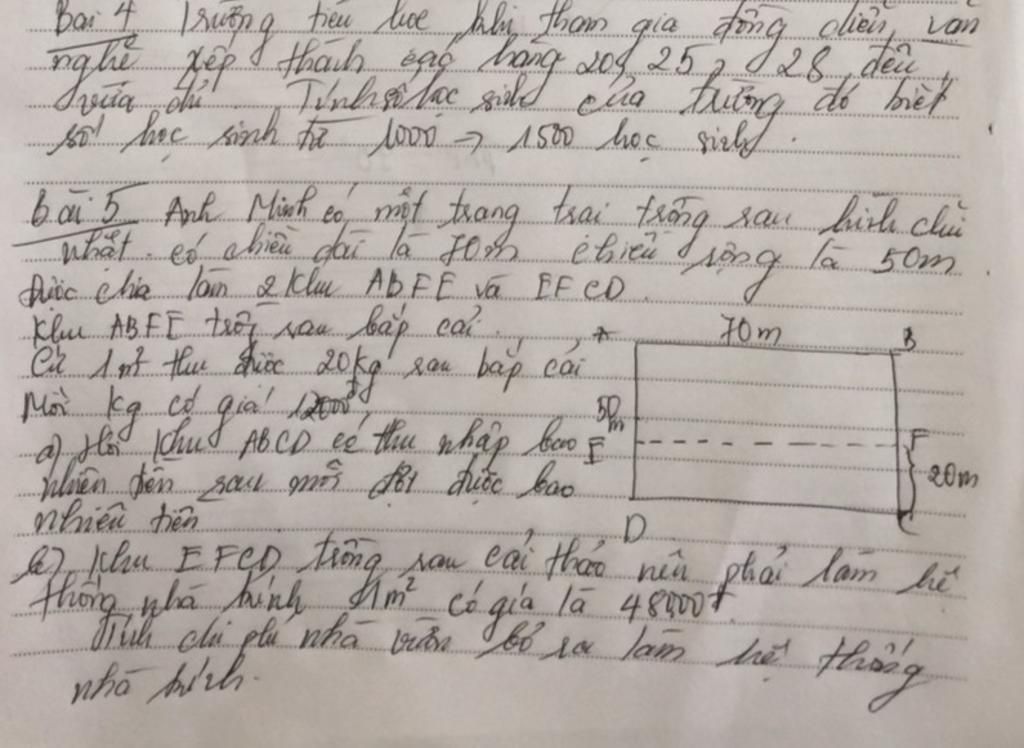 Bài 4 Trường tiểu học khi tham gia đồng diễn văn
nghệ xếp thành các hàng 20, 25, 28 đều
vừa đủ. Tính số học sinh của trường đó biết
số học sinh từ 1000 → 1500 học sinh.
Bài 5 Anh Minh có một trang trại trồng rau hình chữ
nhật có chiều dài là 70m chiều rộng là 50m
Được chia làm 2 khu ABFE và EFCD.
Khu ABFE trồng rau bắp cải.
Cứ 1m² thu được 20kg rau bắp cải
Mỗi kg có giá 12000đ
a) Hỏi khu ABCD có thu nhập bao
nhiên tiền sau mỗi đợt được bao
nhiêu tiền
b) Khu EFCD trồng rau cải thảo nên phải làm hệ
thống nhà kính 1m² có giá là 48000đ
Tính chi phí nhà vườn bỏ ra làm hệ thống
nhà kính.
A 70m B
50m
E F
20m
D C